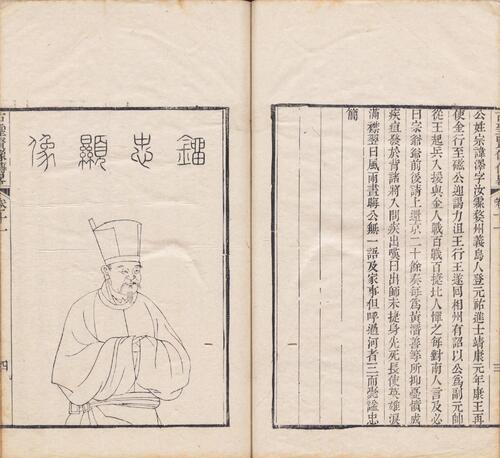 公姓宗諱澤字汝霖婺州義烏人登元祐進士靖康元年康王再
使金行至磁公迎謁力沮王行王遂回相州有詔以公為副元帥
從王起兵入援與金人戰百戰百捷北人憚之每對南人言及必
曰宗爺爺前後請上還京二十餘奏每為黃潛善等所抑憂憤成
疾疽發於背諸將入問疾出嘆曰出師未捷身先死長使英雄淚
滿襟翌日風雨晝晦公無一語及家事但呼過河者三而薨諡忠
簡
三
忠顯像
古聖賢像傳略
卷十一
四